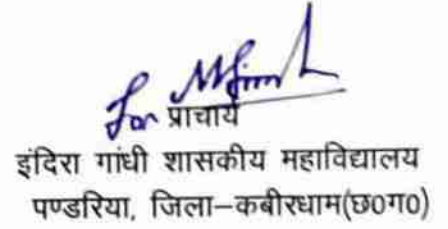 For
प्राचार्य
इंदिरा गांधी शासकीय महाविद्यालय
पण्डरिया, जिला–कबीरधाम(छ0ग0)